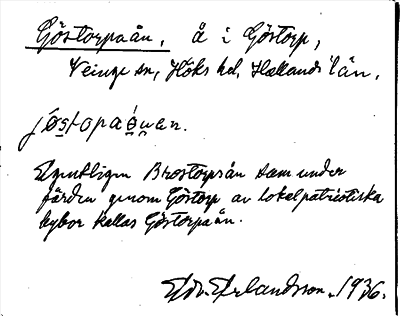 Göstorpaån, å i Göstorp,
Veinge sn, Höks hd, Hallands län.
jös̱topaǫ́u̯ən.
Egentligen Brostorpsån som under
färden genom Göstorp av lokalpatriotiska
bybor kallas Göstorpaån.
Edv. Erlandsson. 1936.